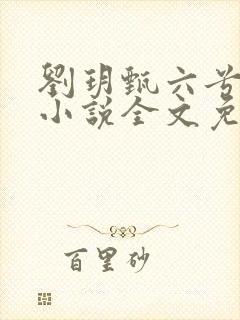 劉玥甄六
小說全文免
百里砂